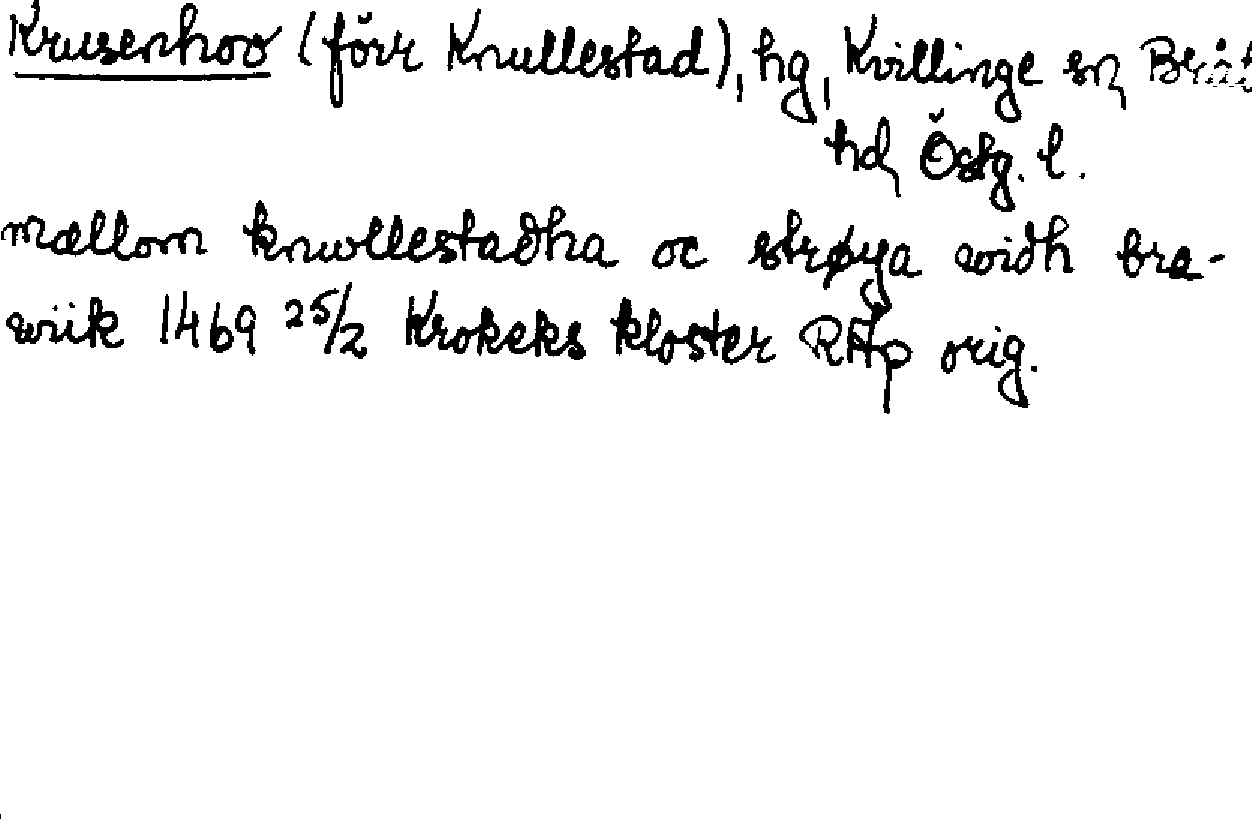 Krusenhov (förr Knullestad), hg, Kvillinge sn, Bråb
hd, Östg. l.
mællom knwllestadha oc strøya widh bra-
wiik 1469 25/2 Krokeks kloster RAp orig.